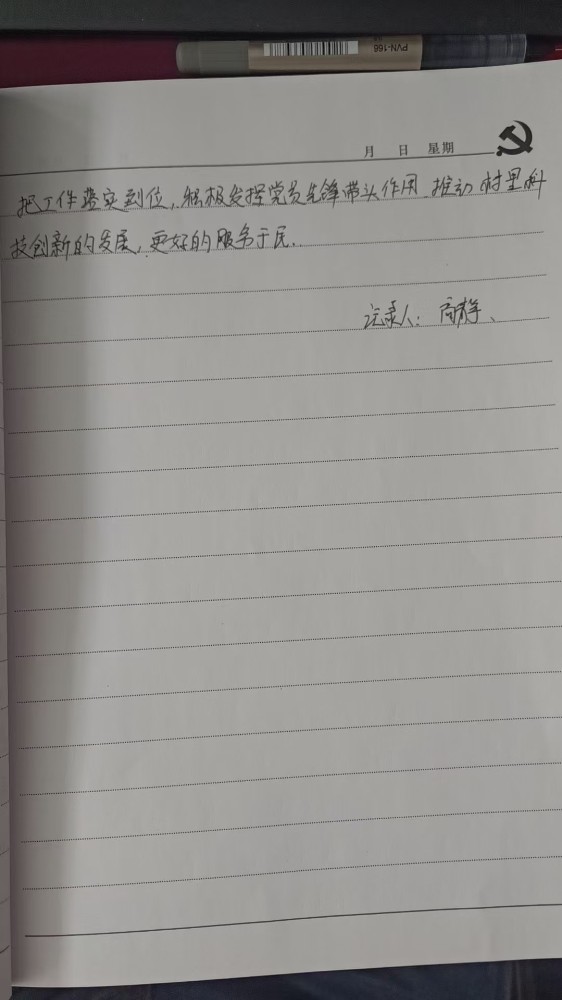 PVN-166
月 日 星期
把工作落实到位，积极发挥党员先锋带头作用 推动村里科
技创新的发展，更好的服务于民.
记录人：商静、